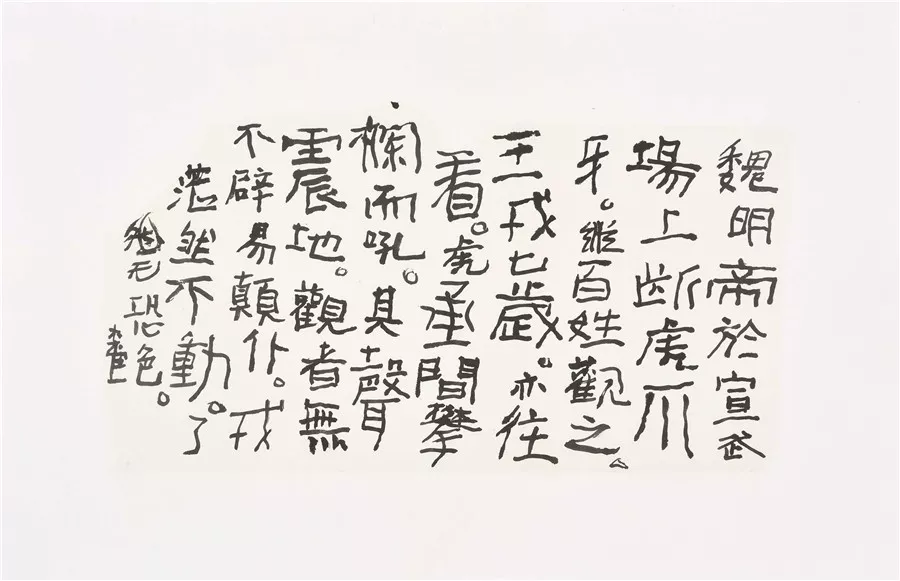 魏明帝於宣武
場上断虎爪
牙。縱百姓觀之
王戎七歲。亦往
看。虎承間攀
欄而吼。其聲
震地。觀者無
不辟易顛仆。戎
湛然不動。了
无恐色。